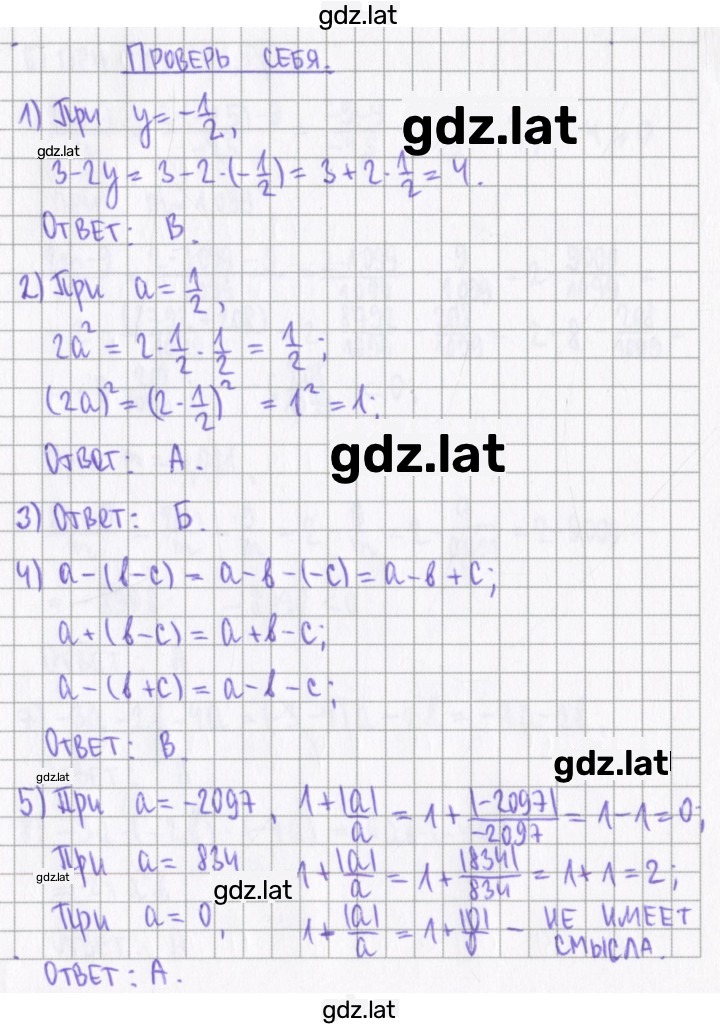 gdz.lat
ПРОВЕРЬ СЕБЯ.
1) При y = -1/2,
gdz.lat
gdz.lat
3-2y = 3-2·(-1/2) = 3+2·1/2 = 4.
ОТВЕТ: В.
2) При a = 1/2,
2a² = 2·1/2·1/2 = 1/2;
(2a)² = (2·1/2)² = 1² = 1;
gdz.lat
ОТВЕТ: А.
3) ОТВЕТ: Б.
4) a-(в-с) = a-в-(-с) = a-в+с;
a+(в-с) = a+в-с;
a-(в+с) = a-в-с;
ОТВЕТ: В.
gdz.lat
gdz.lat
5) При a = -2097, 1+|a|/a = 1+|-2097|/-2097 = 1-1=0;
При a = 834 1+|a|/a = 1+|834|/834 = 1+1=2;
gdz.lat
gdz.lat
При a = 0, 1+|a|/a = 1+|0|/0 - НЕ ИМЕЕТ
СМЫСЛА.
ОТВЕТ: А.
gdz.lat